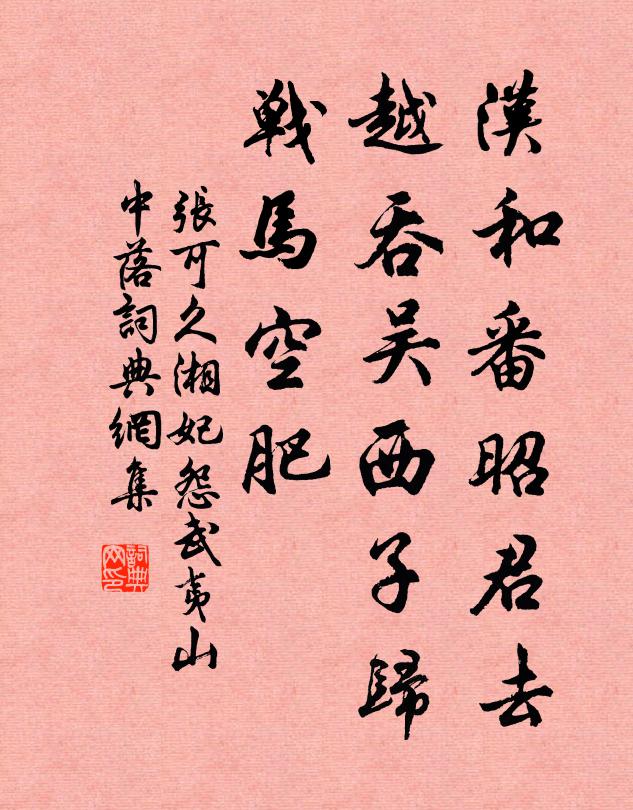 漢和番昭君去
越吞吴西子歸
戰馬空肥
張可久湘妃怨武夷山
中落詞典網集
詞典
网印